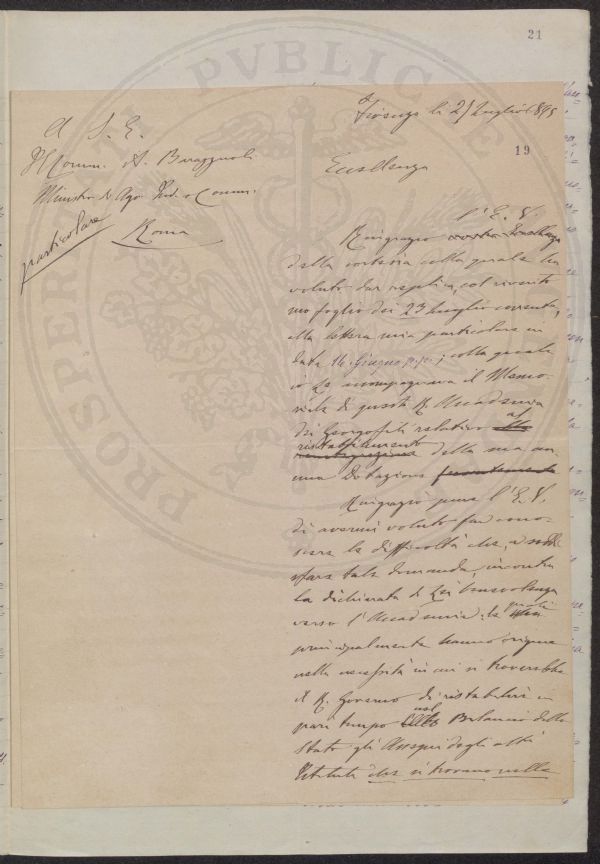 21
Firenze li 25 Luglio 1895
19
A S. E.
Il Comm. A. Barazzuoli
Ministro d'Agr. Ind. e Comm.
Roma
particolare
Eccellenza
l'E. V.
Ringrazio vostra Eccellenza
della cortesia colla quale ha
voluto dar replica, col riverito
suo foglio dei 23 luglio corrente,
alla lettera mia particolare in
data 16 Giugno p.p.; colla quale
io Le accompagnava il Memo-
riale di questa R. Accademia
dei Georgofili relativo alla
al
ristabilimento
reintegrazione della sua an-
nua Dotazione
Ringrazio pure l'E. V.
di avermi voluto far cono-
scere le difficoltà che, a sodi-
sfare tale domanda, incontra
la dichiarata di Lei benevolenza
verso l'Accademia; le quali
principalmente hanno origine
nella necessità in cui si troverebbe
il R. Governo di ristabilire in
pari tempo nel Bilancio dello
Stato gli Assegni degli altri
Istituti che si trovano nella
PVBLICAE
PROSPERITATI